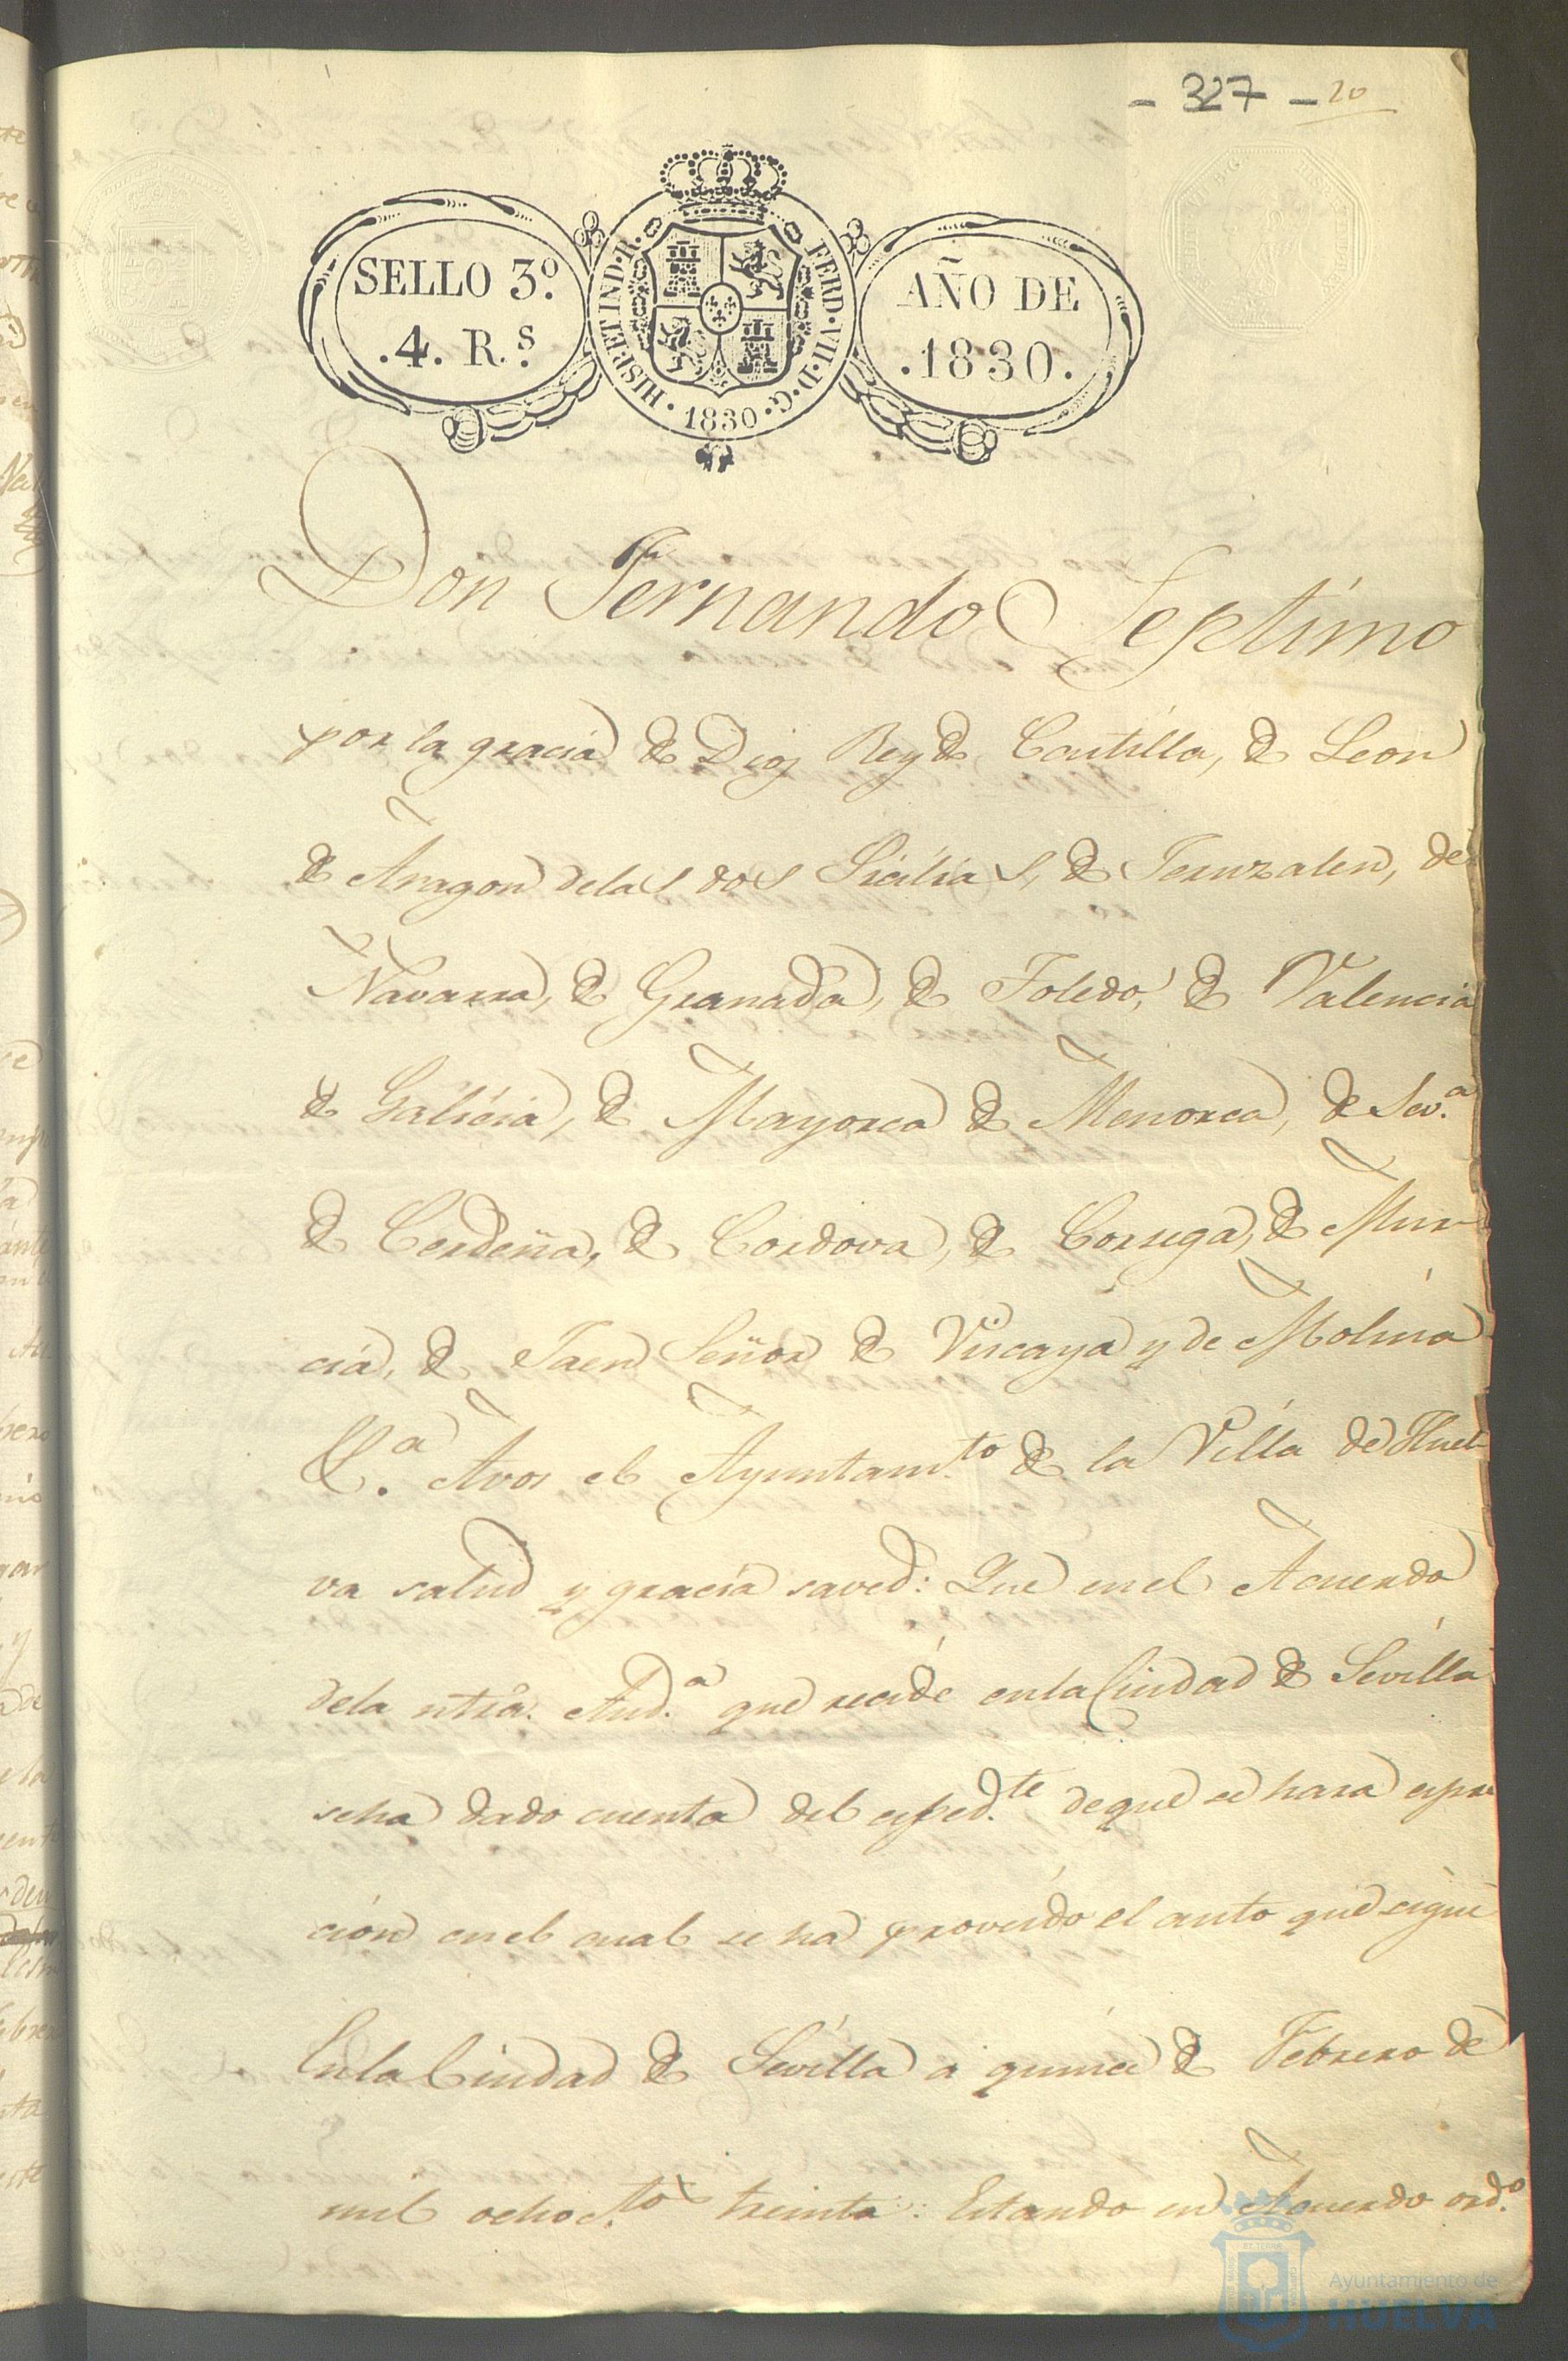 - 327 - 20
SELLO 3º.
.4. R.s
HISP. ET IND. R.
FERD. VII. D. G.
1830
AÑO DE
.1830.
Don Fernando Septimo
por la gracia de Dios Rey de Castilla, de Leon
de Aragon de las dos Sicilias, de Jeruzalen, de
Navarra, de Granada, de Toledo, de Valencia
de Galicia, de Mayorca de Menorca, de Sev.a
de Cerdeña, de Cordova, de Corsega, de Mur
cia, de Jaen Señor de Viscaya y de Molina
&.a Avos el Ayuntam.to de la Villa de Huel
va salud y gracia saved: Que en el Acuerdo
dela ntra. Aud.a que recide enla Ciudad de Sevilla
seha dado cuenta del esped.te deque se hara espre
cion en el cual se ha proveido el auto que sigue
Enla Ciudad de Sevilla a quince de Febrero de
mil ochoc.tos treinta: Estando en Acuerdo ord.o
Ayuntamiento de
HUELVA